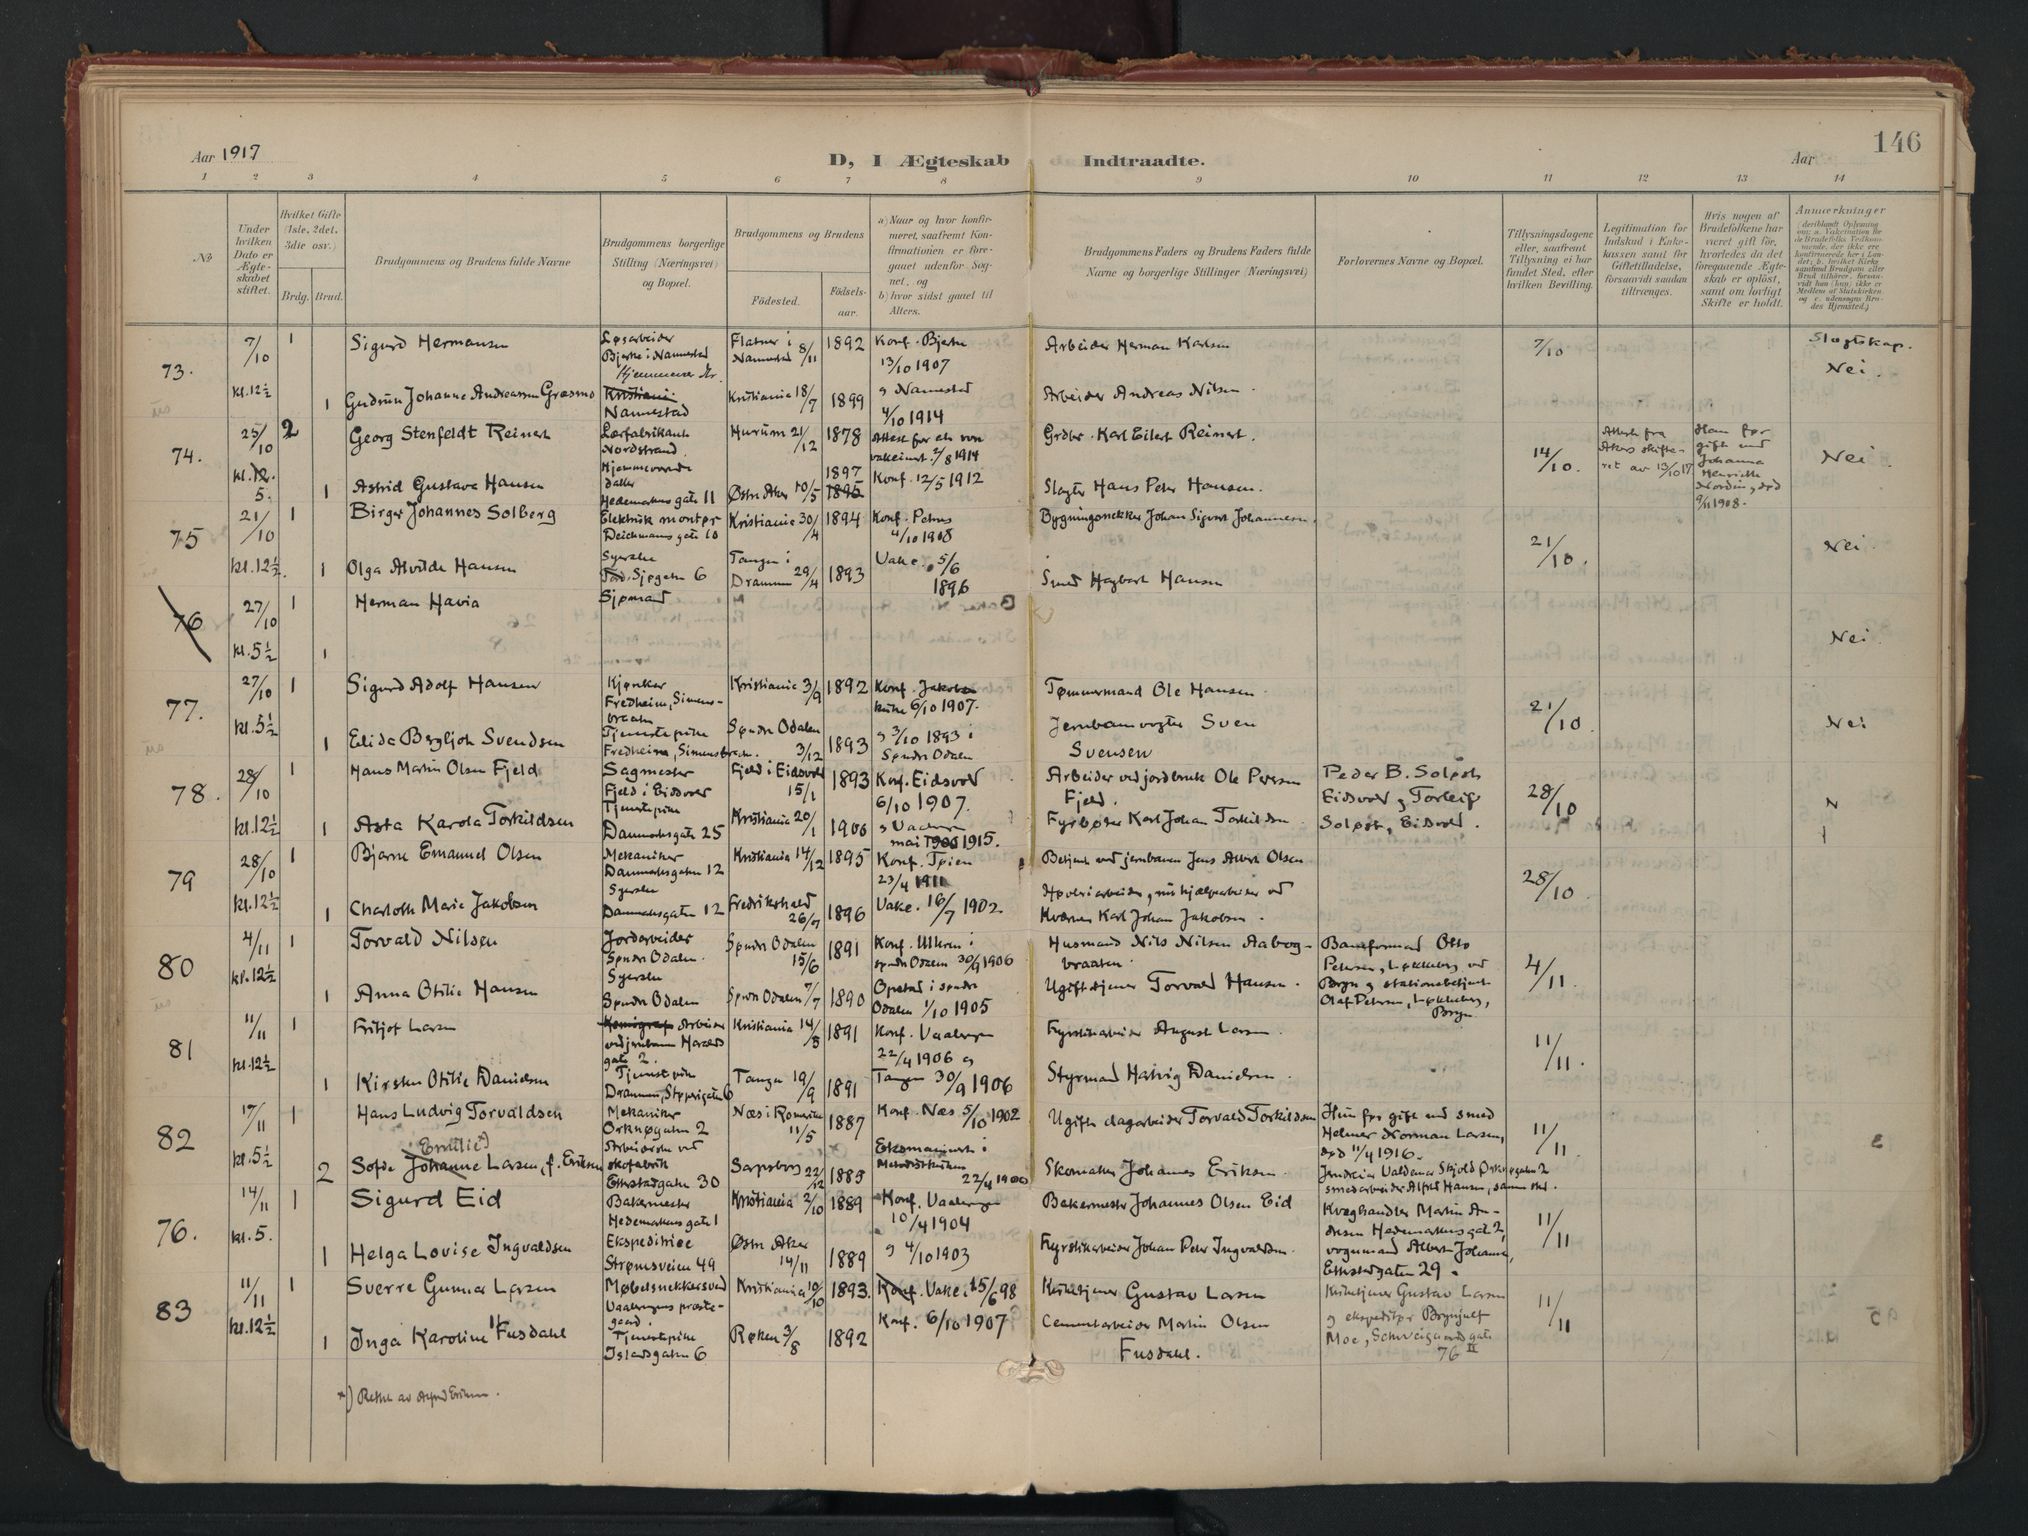 146
Aar 1917
D, I Ægteskab Indtraadte.
Aar
1 2 3 4 5 6 7 8 9 10 11 12 13 14
No
Under hvilken Dato er Ægteskabet stiftet.
Hvilket Gifte (1ste, 2det, 3die osv.)
Brdg. Brud.
Brudgommens og Brudens fulde Navne
Brudgommens borgerlige Stilling (Næringsvei) og Bopæl.
Brudgommens og Brudens
Fødested.
Fødselsaar.
a) Naar og hvor konfirmeret, saafremt Konfirmationen er foregaaet udenfor Sognet, og
b) hvor sidst gaaet til Alters.
Brudgommens Faders og Brudens Faders fulde Navne og borgerlige Stillinger (Næringsvei)
Forlovernes Navne og Bopæl.
Tillysningsdagene eller, saafremt Tillysning ei har fundet Sted, efter hvilken Bevilling.
Legitimation for Indskud i Enkekassen samt for Giftetilladelse, forsaavidt saadan tiltrænges.
Hvis nogen af Brudefolkene har været gift før, hvorledes da det foregaaende Ægteskab er opløst, samt om lovligt Skifte er holdt.
Anmærkninger
73.
7/10 1 Sigurd Hermansen Løsarbeider Bjerke i Nannestad Flatner i Nannestad 8/11 1892 Konf. Bjerke 13/10 1907 Arbeider Herman Karlsen 7/10 Slegtskap. Nei.
kl. 12½ 1 Gudrun Johanne Andreassen Græsmo Kristiania Nannestad Kristiania 18/7 1899 og Nannestad 4/10 1914 Arbeider Andreas Nilsen
74.
25/10 2 Georg Stenfeldt Reinert Lærfabrikant Nordstrand Hurum 21/12 1878 Grdbr. Karl Eilert Reinert. 14/10. Attest fra Akers skifteret av 13/10 17 Han før gift med Johanna Henriette Nordin, død 9/11 1908. Nei.
kl. 12. 5. 1 Astrid Gustava Hansen Hjemmeværende datter Hedemarksgate 11 Østre Aker 10/5 1897 1895 Konf. 12/5 1912 Slagter Hans Peter Hansen.
75
21/10 1 Birger Johannes Solberg Elektrisk montør Deichmansgate 10 Kristiania 30/4 1894 Konf. Petrus 4/10 1908 Bygningssnekker Johan Sigvart Johannesen 21/10. Nei.
kl. 12½. 1 Olga Alvilde Hansen Syerske Tangen i Drammen 29/4 1893 Vake. 5/6 1896 Smed Hagbart Hansen
76
27/10 1 Herman Havia Sjømand Nei.
kl. 5½ 1
77.
27/10 1 Sigurd Adolf Hansen Kjørker Fredheim, Simensbraaten Kristiania 3/9 1892 Konf. Jakobs kirke 6/10 1907. Tømmermand Ole Hansen 21/10. Nei
kl. 5½ 1 Elida Bergljot Svendsen Tjenestepike Fredheim, Simensbraaten. Søndre Odalen 3/12 1893 og 3/10 1893 i Søndre Odalen Jernbanevogter Sven Svensen
78.
28/10 1 Hans Martin Olsen Fjeld Sagmester Fjeld i Eidsvold Fjeld i Eidsvold 15/1 1893 Konf. Eidsvold 6/10 1907. Arbeider ved jordbruk Ole Persen Fjeld. Peder B. Solpst Eidsvold og Torleif Solpst, Eidsvold. 28/10 N
kl. 12½ 1 Asta Karola Torkildsen Tjenestepike Danmarksgate 25 Kristiania 20/1 1900 og Vaalerengen mai 1906 1915. Fyrbøter Karl Johan Torkildsen
79
28/10 1 Bjarne Emanuel Olsen Mekaniker Danmarksgaten 12 Kristiania 14/12 1895 Konf. Tøien 23/4 1911 Betjent ved jernbanen Jens Albert Olsen 28/10.
kl. 12½ 1 Charlotte Marie Jakobsen Syerske Danmarksgaten 12 Fredrikshald 26/7 1896 Vake. 16/7 1902. Høvleriarbeider, nu hjælpearbeider ved Kværner Karl Johan Jakobsen.
80
4/11 1 Torvald Nilsen Jordarbeider Søndre Odalen. Søndre Odalen 15/6 1891 Konf. Ullern i søndre Odalen 30/9 1906 Husmand Nils Nilsen Aabogbraaten. Baneformand Otto Petersen, Løkkeberg ved Bryn og stationsbetjent Olaf Petersen, Løkkeberg, Bryn 4/11.
kl. 12½ 1 Anna Otilie Hansen Syerske Søndre Odalen Søndre Odalen 7/7 1890 Opstad i søndre Odalen 1/10 1905 Ugift tjener Torvald Hansen.
81
11/11 1 Fritjof Larsen Arbeider ved jernbanen Haralds gate 2. Kristiania 14/5 1891 Konf. Vaalerengen 22/4 1906 og Fyrstikarbeider August Larsen. 11/11.
kl. 12½ 1 Kirsten Otilie Danielsen Tjenestepike Drammen, Støperigaten 6 Tangen 19/9 1891 Tangen 30/9 1906 Styrmand Hatvig Danielsen.
82
17/11 1 Hans Ludvig Torvaldsen Mekaniker Orknøgaten 2 Næs i Romerike 11/5 1887 Konf. Næs 5/10 1902 Ugift dagarbeider Torvald Torkildsen Hun før gift med smed Helmer Norman Larsen, død 11/4 1916. 11/11.
kl. 5½ 2 Sofie Johanne Emilie x) Larsen, f. Eriksen Arbeiderske ved skofabrik Etterstadgaten 30 Sarpsborg 22/12 1885 Metodistkirken 22/4 1900 Skomaker Johannes Eriksen Valdemar Skjold Orknøgaten 2 smedarbeider Alfred Hansen, samme sted.
76.
14/11 1 Sigurd Eid Bakermester Hedemarkens gate 1 Kristiania 2/10 1889 Konf. Vaalerengen 10/4 1904 Bakermester Johannes Olsen Eid Kvæghandler Martin Andresen Hedemarkens gt 2, vognmand Albert Johansen, Etterstadgaten 29. 11/11
kl. 5. 1 Helga Lovise Ingvaldsen Ekspeditrice Strømsveien 49 Østre Aker 14/11 1889 og 4/10 1903 Fyrstikarbeider Johan Peter Ingvaldsen.
83
11/11 1 Sverre Gunnar Larsen Møbelsnekkersvend Vaalerengens præstegaard. Kristiania 10/10 1893. Konf. Vake. 15/6 98 Kirketjener Gustav Larsen Kirketjener Gustav Larsen og ekspeditør Brynjulf Moe, Schweigaardsgate 76 II 11/11
kl. 12½ 1 Inga Karoline Fusdahl Tjenestepike Islandsgaten 6 Røken 3/8 1892 Konf. 6/10 1907 Cementarbeider Martin Olsen Fusdahl.
x) Rettet av Alfred Eriksen.